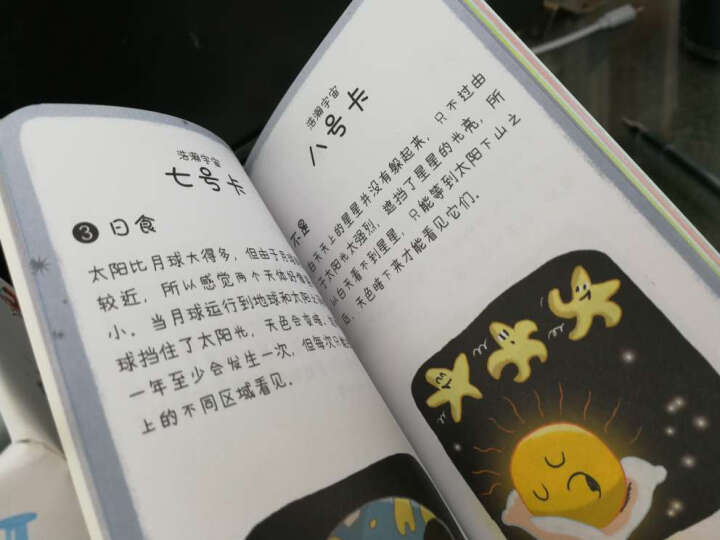 浩瀚宇宙
七号卡
3 日食
太阳比月球大得多，但由于
较近，所以感觉两个天体好像
小．当月球运行到地球和太阳
球挡住了太阳光，天色会变暗．
一年至少会发生一次，但每次只能
上的不同区域看见．
浩瀚宇宙
八号卡
不是
白天天上的星星并没有躲起来，只不过由
于太阳光太强烈，遮挡了星星的光亮，所
以白天看不到星星，只能等到太阳下山之
后，天色暗下来才能看见它们．